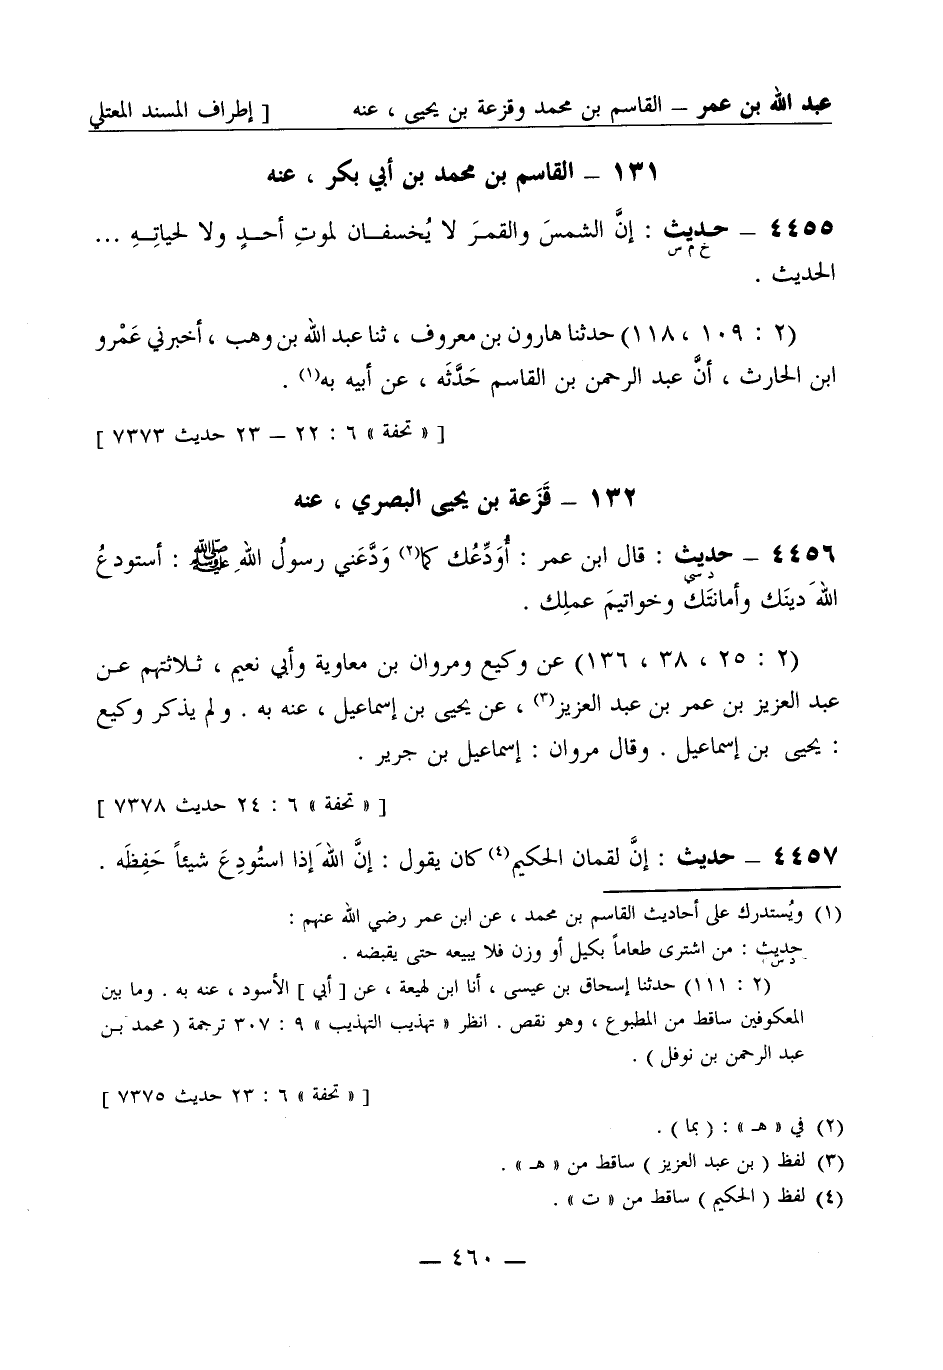 عبد الله بن عمر – القاسم بن محمد وقزعة بن يحيى ، عنه [ إطراف المسند المعتلي
١٣١ – القاسم بن محمد بن أبي بكر ، عنه
٤٤٥٥ – حديث : إنَّ الشمسَ والقمرَ لا يُخسفان لموتِ أحدٍ ولا لحياتِهِ ...
خ م س
الحديث .
(٢ : ١٠٩ ، ١١٨) حدثنا هارون بن معروف ، ثنا عبد الله بن وهب ، أخبرني عَمْرو
ابن الحارث ، أنَّ عبد الرحمن بن القاسم حَدَّثَه ، عن أبيه به(١) .
[ « تحفة » ٦ : ٢٢ – ٢٣ حديث ٧٣٧٣ ]
١٣٢ – قَزَعة بن يحيى البصري ، عنه
٤٤٥٦ – حديث : قال ابن عمر : أُوَدِّعُك كما(٢) وَدَّعَني رسولُ اللهِ ﷺ : أستودعُ
د سي
اللهَ دينَك وأمانتَك وخواتيمَ عملِك .
(٢ : ٢٥ ، ٣٨ ، ١٣٦) عن وكيع ومروان بن معاوية وأبي نعيم ، ثلاثتهم عن
عبد العزيز بن عمر بن عبد العزيز(٣) ، عن يحيى بن إسماعيل ، عنه به . ولم يذكر وكيع
: يحيى بن إسماعيل . وقال مروان : إسماعيل بن جرير .
[ « تحفة » ٦ : ٢٤ حديث ٧٣٧٨ ]
٤٤٥٧ – حديث : إنَّ لقمان الحكيم(٤) كان يقول : إنَّ اللهَ إذا استُودِعَ شيئاً حَفِظَه .
(١) ويُستدرك على أحاديث القاسم بن محمد ، عن ابن عمر رضي الله عنهم :
حديث : من اشترى طعاماً بكيل أو وزن فلا يبيعه حتى يقبضه .
د س
(٢ : ١١١) حدثنا إسحاق بن عيسى ، أنا ابن لهيعة ، عن [ أبي ] الأسود ، عنه به . وما بين
المعكوفين ساقط من المطبوع ، وهو نقص . انظر « تهذيب التهذيب » ٩ : ٣٠٧ ترجمة ( محمد بن
عبد الرحمن بن نوفل ) .
[ « تحفة » ٦ : ٢٣ حديث ٧٣٧٥ ]
(٢) في « هـ » : ( بما ) .
(٣) لفظ ( بن عبد العزيز ) ساقط من « هـ » .
(٤) لفظ ( الحكيم ) ساقط من « ت » .
– ٤٦٠ –